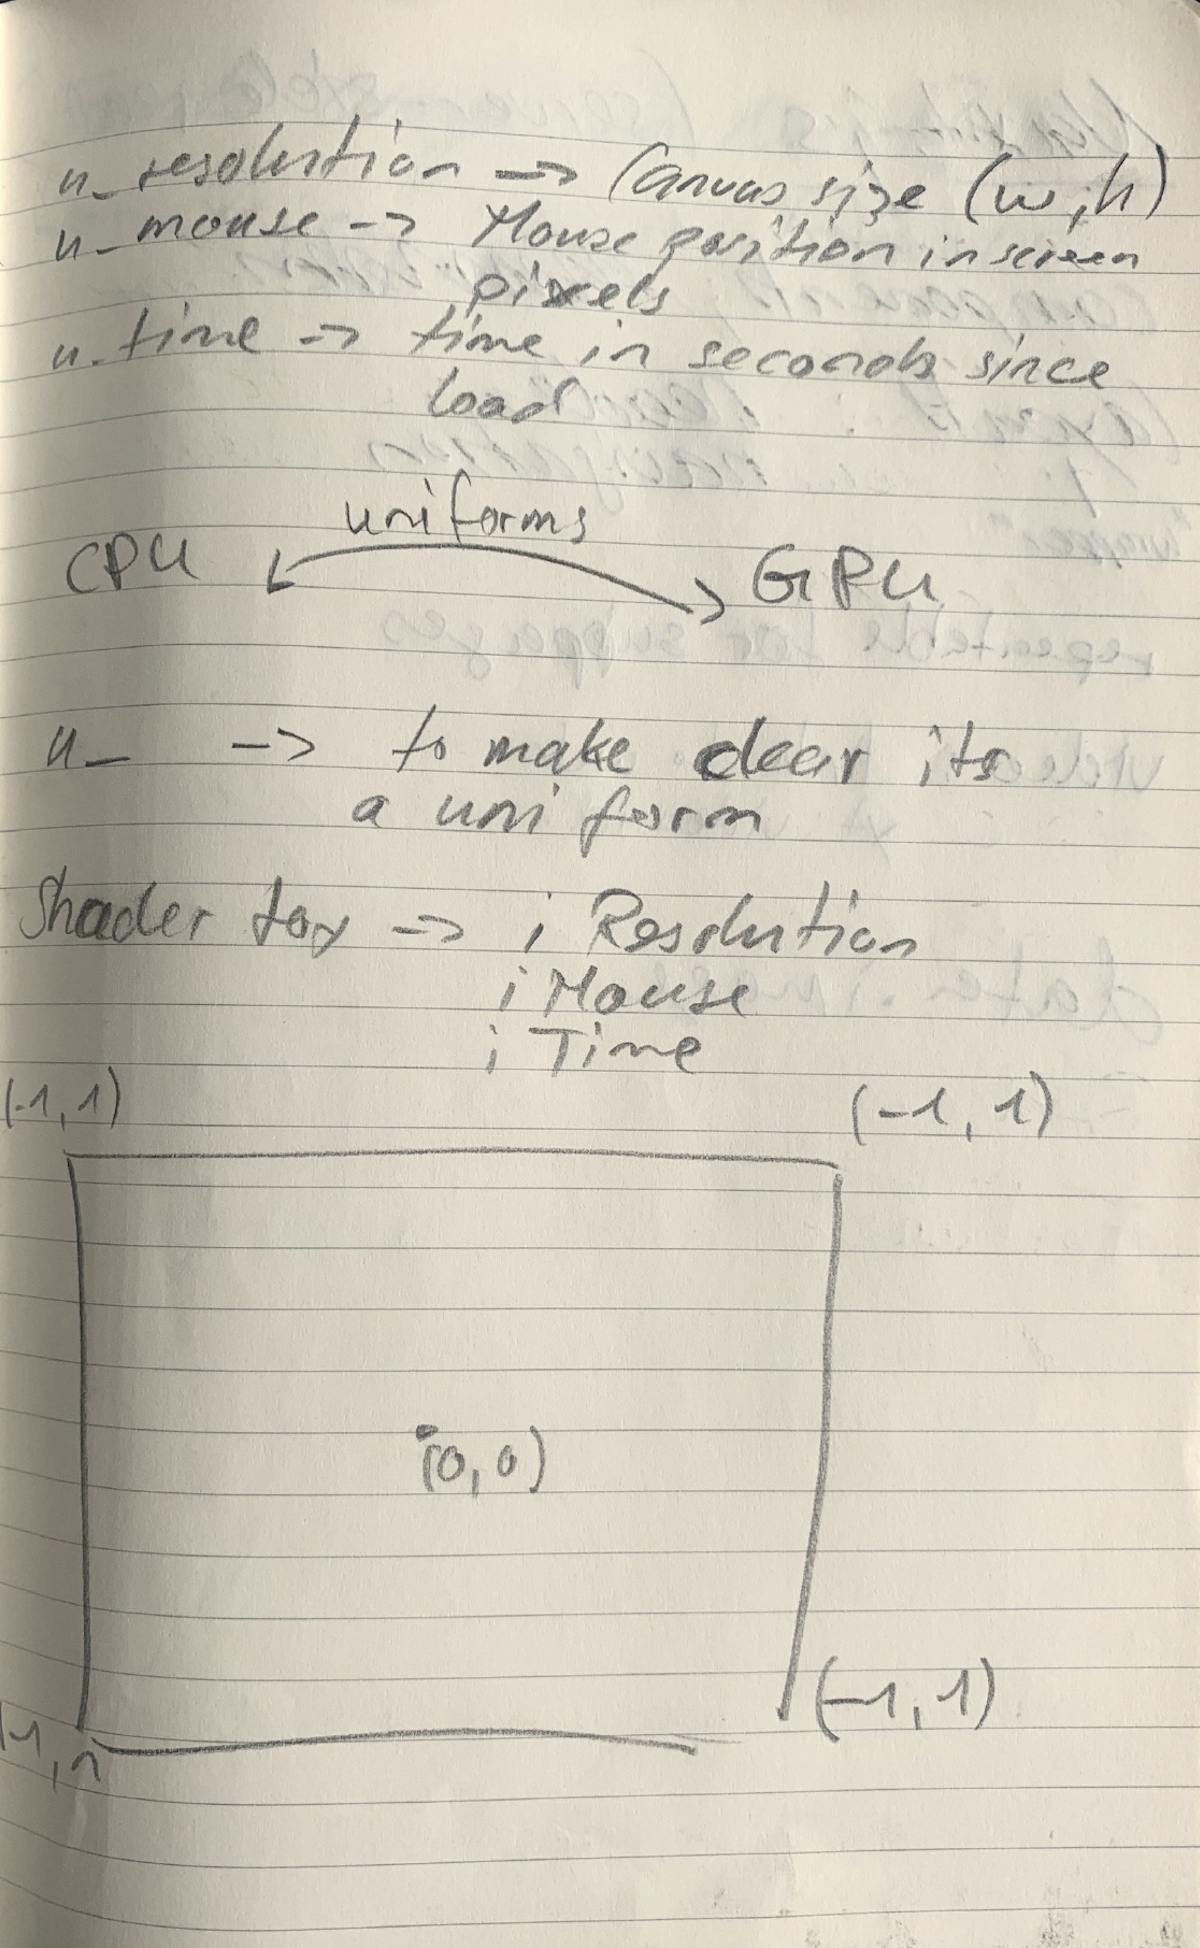 u_resolution -> Canvas size (w,h)
u_mouse -> Mouse position in screen
pixels
u_time -> time in seconds since
load
uniforms
CPU GPU
u_ -> to make clear its
a uniform
Shader toy -> i Resolution
i Mouse
i Time
(-1, 1) (-1, 1)
(0, 0)
(-1, 1)